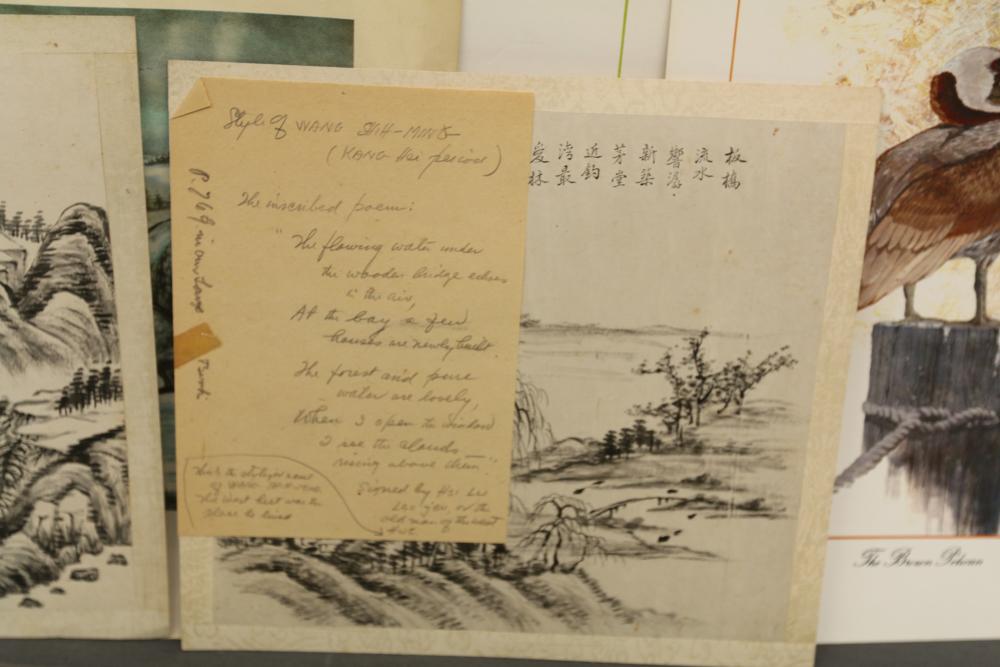 Style of WANG SHIH-MING
(KANG Hsi period)
The inscribed poem:
"The flowing water under
the wooden bridge echoes
in the air,
At the bay a few
houses are newly built.
The forest and pure
water are lovely,
When I open the window
I see the clouds
rising above them"
Signed by Hsi Lu
Lao Jen, or the
old man of the West
Hut
This is the stylized name
The West Hut was the
place he lived
P. 769 in our large
Book
板橋
流水
響潺
新築
茅堂
近鈎
湾最
愛林
The Brown Pelican